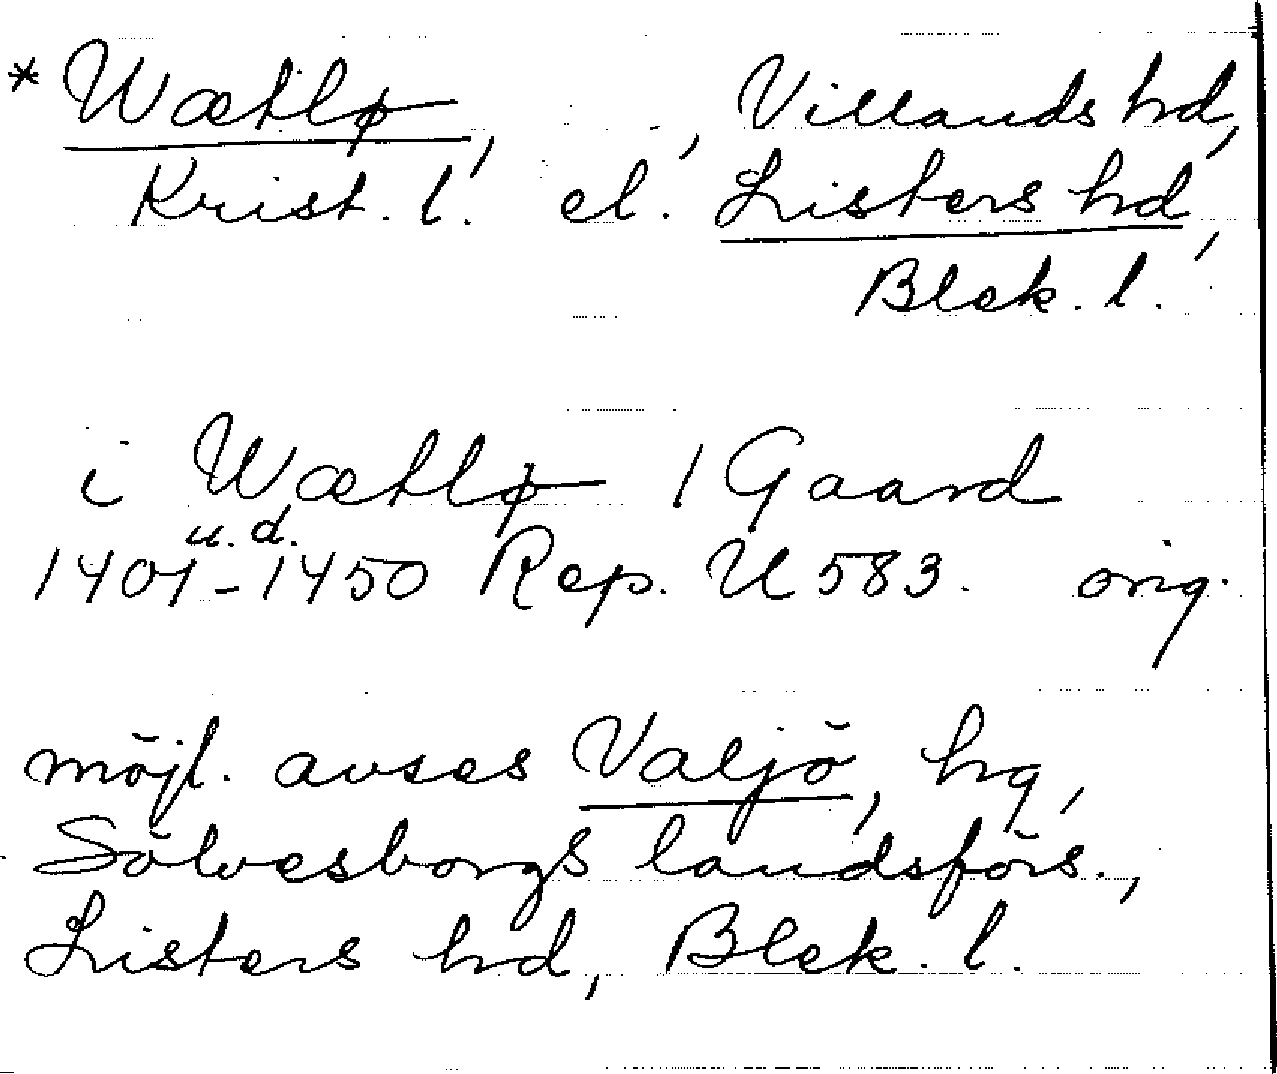 *Wætlø, , Villands hd,
Krist. l. el. Listers hd,
Blek. l.
i Wætlø 1 Gaard
u.d.
1401-1450 Rep. U 583. orig.
möjl. avses Valjö, hg,
Sölvesborgs landsförs.,
Listers hd, Blek. l.